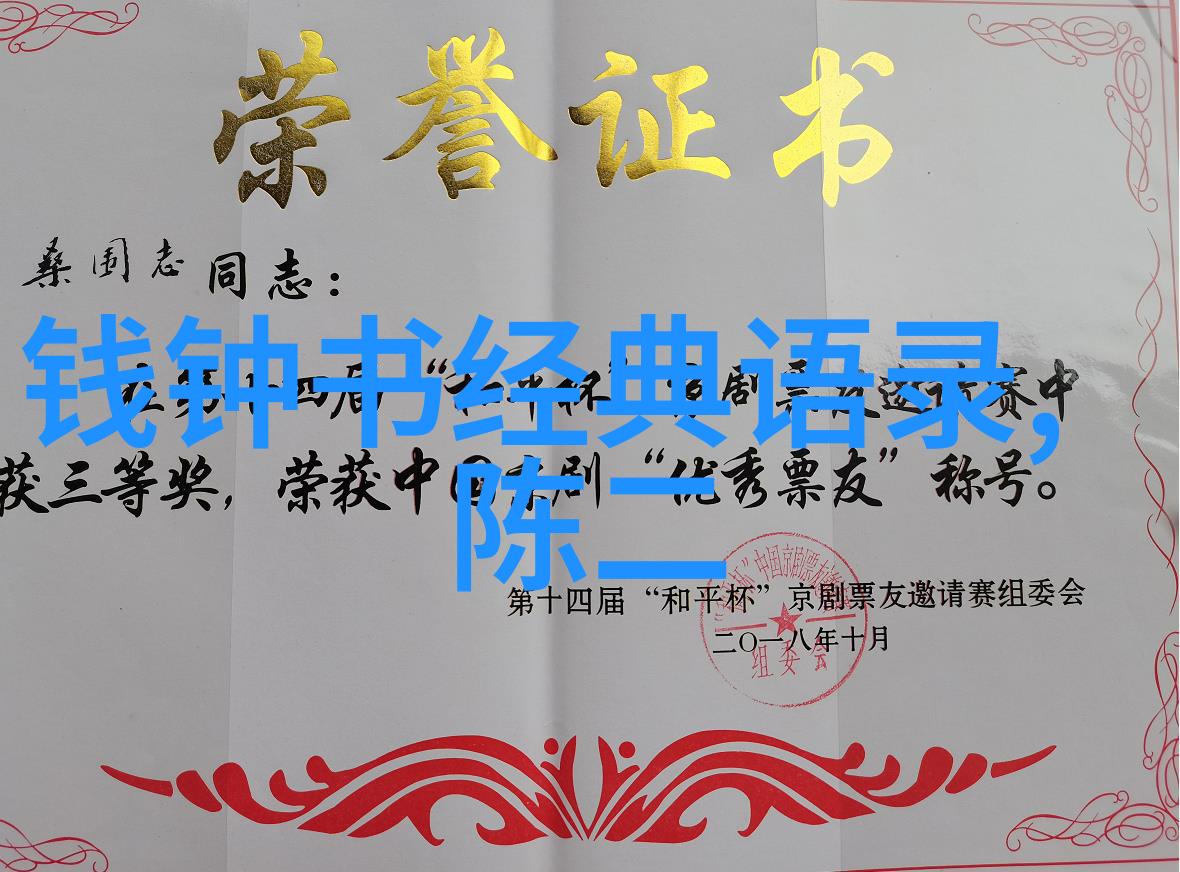 荣誉证书
桑国志同志：
在第十四届“和平杯”京剧票友邀请赛中
获三等奖，荣获中国京剧“优秀票友”称号。
钱钟书经典语录,
陈二
第十四届“和平杯”京剧票友邀请赛组委会
二〇一八年十月
组委会